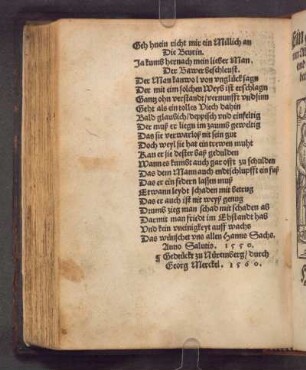 Geh hnein richt mir ein Millich an
Die Bewrin.
Ja kumb hernach mein lieber Man.
Der Bawer beschleust.
Der Man kan wol von vnglück sagn
Der mit eim solchen Weyb ist erschlagn
Gantz ohn verstandt / vernunfft vnd sinn
Geht als ein tolles Viech dahin
Bald glaubich / deppisch vnd einfeltig
Der muß er liegn im zaum geweltig
Das sie verwarloß nit sein gut
Doch weyl sie hat ein trewen muht
Kan er sie dester baß gedulden
Wann es kumbt auch gar offt zu schulden
Das dem Mann auch endschlupfft ein fuß
Das er ein federn lassen muß
Etwann leydt schaden mit betrug
Das er auch ist nit weyß genug
Drumb zieg man schad mit schaden ab
Darmit man friedt im Ehstandt hab
Vnd kein vneinigkeyt auff wachs
Das wünschet vns allen Hanns Sachs.
Anno Salutis. 1550.
¶ Gedrückt zu Nürmberg / durch
Georg Merckel. 1560.